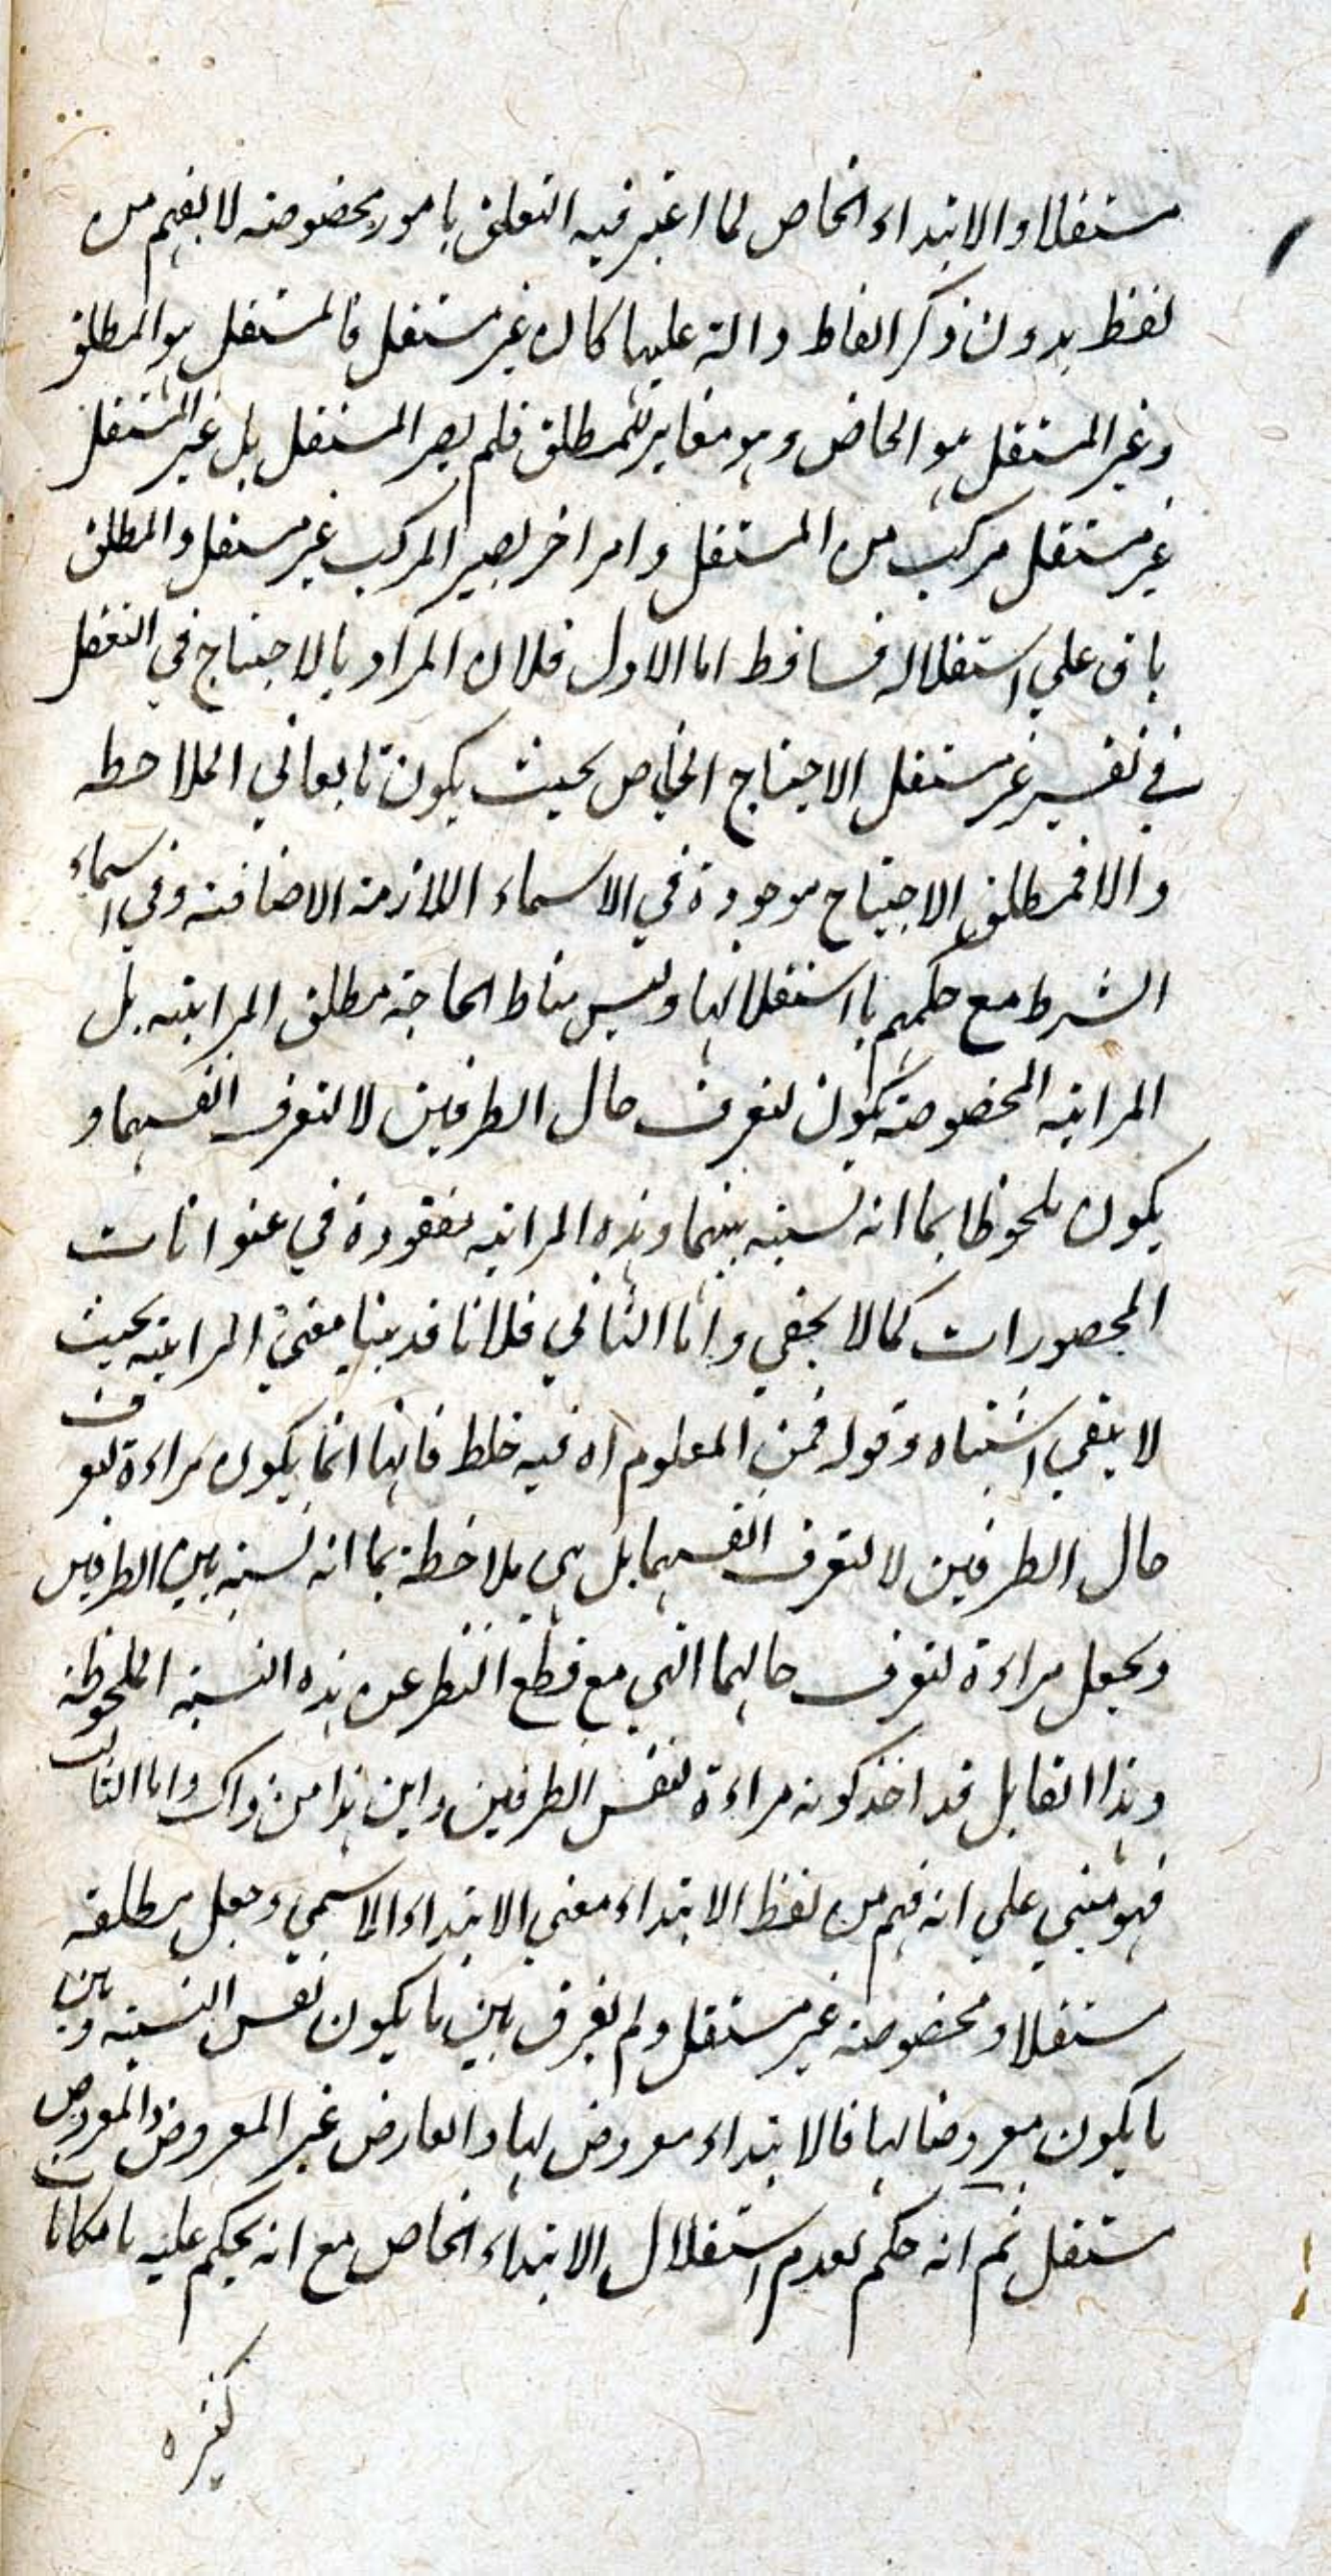 مستقلا والابتداء الخاص لما اعتبر فيه التعلق بامور مخصوصة لا يفهم من
لفظ بدون ذكر الفاظ دالة عليها كان غير مستقل فالمستقل هو المطلق
وغير المستقل هو الخاص وهو مغاير للمطلق فلم يصر المستقل بل غير المستقل
غير مستقل مركب من المستقل وامر اخر يصير المركب غير مستقل والمطلق
باق علي استقلاله فساقط اما الاول فلان المراد بالاحتياج في التعقل
في تفسير غير مستقل الاحتياج الخاص بحيث يكون تابعا في الملاحظه
والا فمطلق الاحتياج موجودة في الاسماء اللازمة الاضافة وفي اسماء
الشرط مع حكمهم باستقلالها وليس مناط الحاجة مطلق المراتية بل
المراتية المخصوصة يكون لتعرف حال الطرفين لا لتعرف انفسهما و
يكون ملحوظا بما انه نسبة بينهما وهذه المراتية مفقودة في عنوانات
المحصورات كما لا يخفي واما الثاني فلانا قد بينا معني المراتية بحيث
لا يبقي اشتباه وقوله فمن المعلوم اه فيه خلط فانها انما يكون مراءة لتعرف
حال الطرفين لا لتعرف انفسهما بل هي ملاحظة بما انه نسبة بين الطرفين
ويجعل مراءة لتعرف حالهما التي مع قطع النظر عن هذه النسبة الملحوظة
وهذا القايل قد اخذ كونه مراءة لنفس الطرفين واين هذا من ذاك واما الثالث
فهو مبني علي انه فهم من لفظ الابتداء معني الابتداء الاسمي وجعل مطلقه
مستقلا ومخصوصه غير مستقل ولم يفرق بين ما يكون نفس النسبة وبين
ما يكون معروضا لها فالابتداء معروض لها والعارض غير المعروض والمعروض
مستقل ثم انه حكم بعدم استقلال الابتداء الخاص مع انه يحكم عليه بامكانات